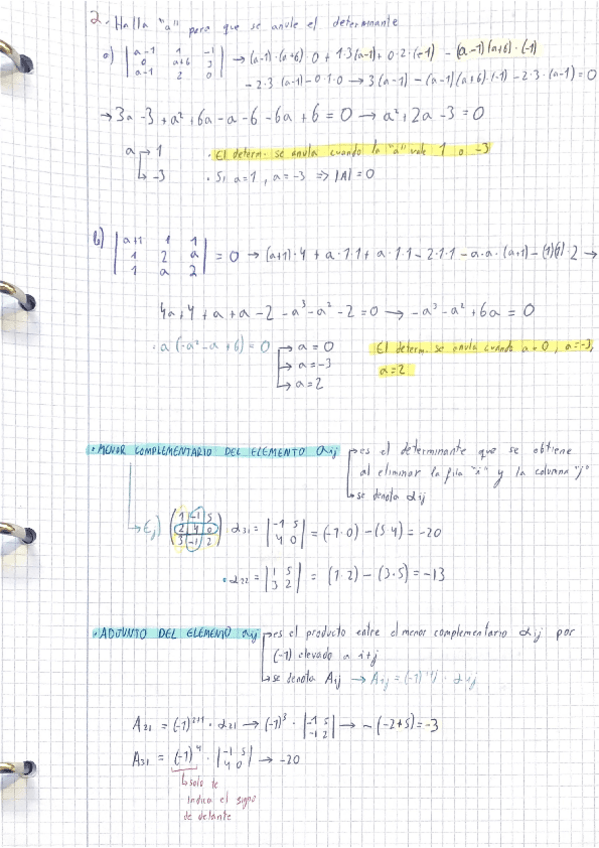 2. Halla "a" para que se anule el determinante
a) | a-1 1 -1 | → (a-1)·(a+6)·0 + 1·3(a-1) + 0·2·(-1) - (a-1)(a+6)·(-1)
| 0 a+6 3 |
| a-1 2 0 | - 2·3·(a-1) - 0·1·0 → 3(a-1) - (a-1)(a+6)·(-1) - 2·3·(a-1) = 0
→ 3a - 3 + a² + 6a - a - 6 - 6a + 6 = 0 → a² + 2a - 3 = 0
a → 1 · El determ. se anula cuando la "a" vale 1 o -3
↳ -3 · Si a=1, a=-3 ⇒ |A| = 0
b) | a+1 1 1 |
| 1 2 a | = 0 → (a+1)·4 + a·1·1 + a·1·1 - 2·1·1 - a·a·(a+1) - (1)(1)·2 →
| 1 a 2 |
4a + 4 + a + a - 2 - a³ - a² - 2 = 0 → -a³ - a² + 6a = 0
· a(-a² - a + 6) = 0 → a = 0 El determ. se anula cuando a=0, a=-3,
→ a = -3 a=2
→ a = 2
· MENOR COMPLEMENTARIO DEL ELEMENTO aij → es el determinante que se obtiene
al eliminar la fila "i" y la columna "j"
↳ se denota αij
→ Ej) ( 1 -1 5 )
( 2 4 0 ) α31 = | -1 5 | = (-1·0) - (5·4) = -20
( 3 -1 2 ) | 4 0 |
· α22 = | 1 5 | = (1·2) - (3·5) = -13
| 3 2 |
· ADJUNTO DEL ELEMENTO aij → es el producto entre el menor complementario αij por
(-1) elevado a i+j
↳ se denota Aij → Aij = (-1)^i+j · αij
A21 = (-1)²⁺¹ · α21 → (-1)³ · | -1 5 | → -(-2+5) = -3
| -1 2 |
A31 = (-1)⁴ · | -1 5 | → -20
| 4 0 |
↳ solo te
indica el signo
de delante